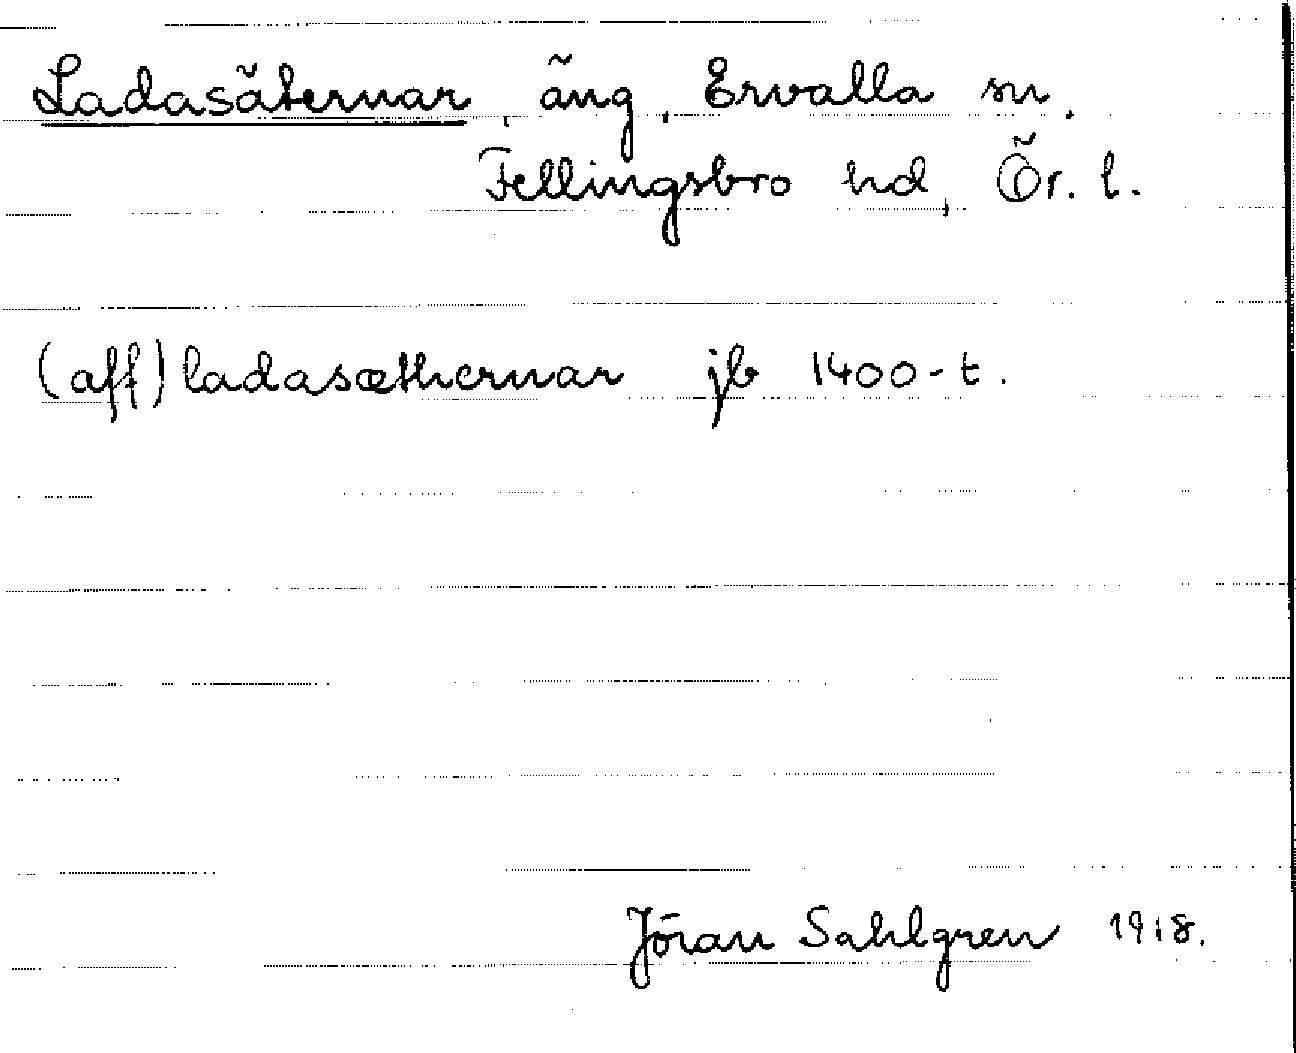 Ladasäternar, äng, Ervalla sn.
Fellingsbro hd, Ör. l.
(aff) ladasæthernar jb 1400-t.
Jöran Sahlgren 1918.